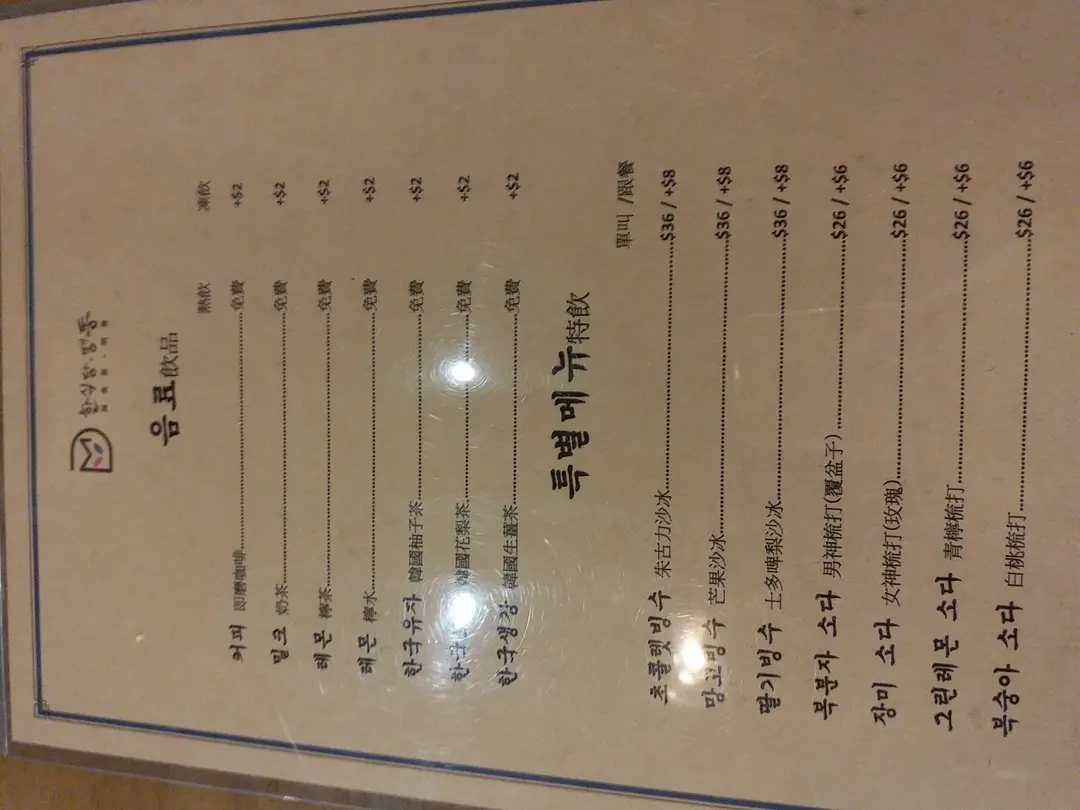 음료飲品
熱飲 凍飲
커피 即磨咖啡 免費 +$2
밀크 奶茶 免費 +$2
레몬 檸茶 免費 +$2
레몬 檸水 免費 +$2
한국유자 韓國柚子茶 免費 +$2
韓國花梨茶 免費 +$2
한국생강 韓國生薑茶 免費 +$2
특별메뉴特飲
單叫 /跟餐
초콜렛빙수 朱古力沙冰 $36 / +$8
망고빙수 芒果沙冰 $36 / +$8
딸기빙수 士多啤梨沙冰 $36 / +$8
복분자 소다 男神梳打(覆盆子) $26 / +$6
장미 소다 女神梳打(玫瑰) $26 / +$6
그린레몬 소다 青檸梳打 $26 / +$6
복숭아 소다 白桃梳打 $26 / +$6